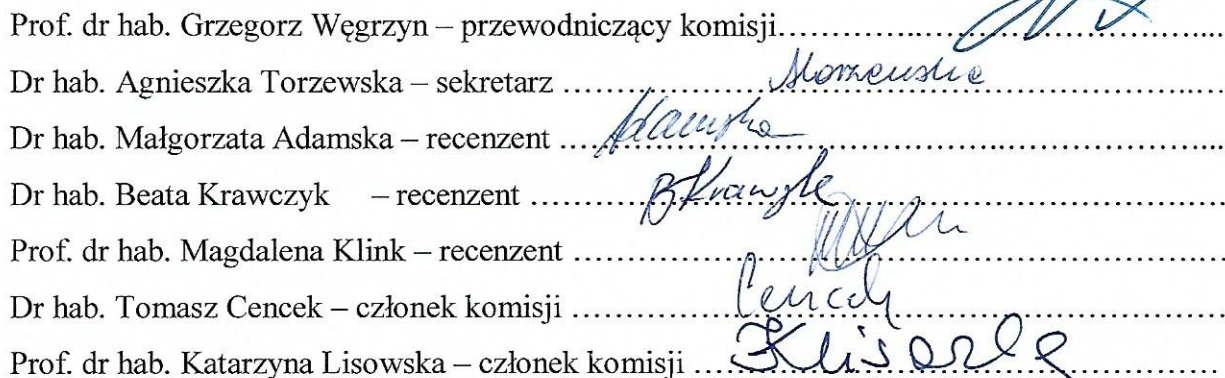 Prof. dr hab. Grzegorz Węgrzyn – przewodniczący komisji...............................................
Dr hab. Agnieszka Torzewska – sekretarz ............................................................
Dr hab. Małgorzata Adamska – recenzent .... Adamska ............................................
Dr hab. Beata Krawczyk – recenzent ............ BKrawczyk ............................................
Prof. dr hab. Magdalena Klink – recenzent ............................................................
Dr hab. Tomasz Cencek – członek komisji ............ Cencek ............................................
Prof. dr hab. Katarzyna Lisowska – członek komisji ............................................